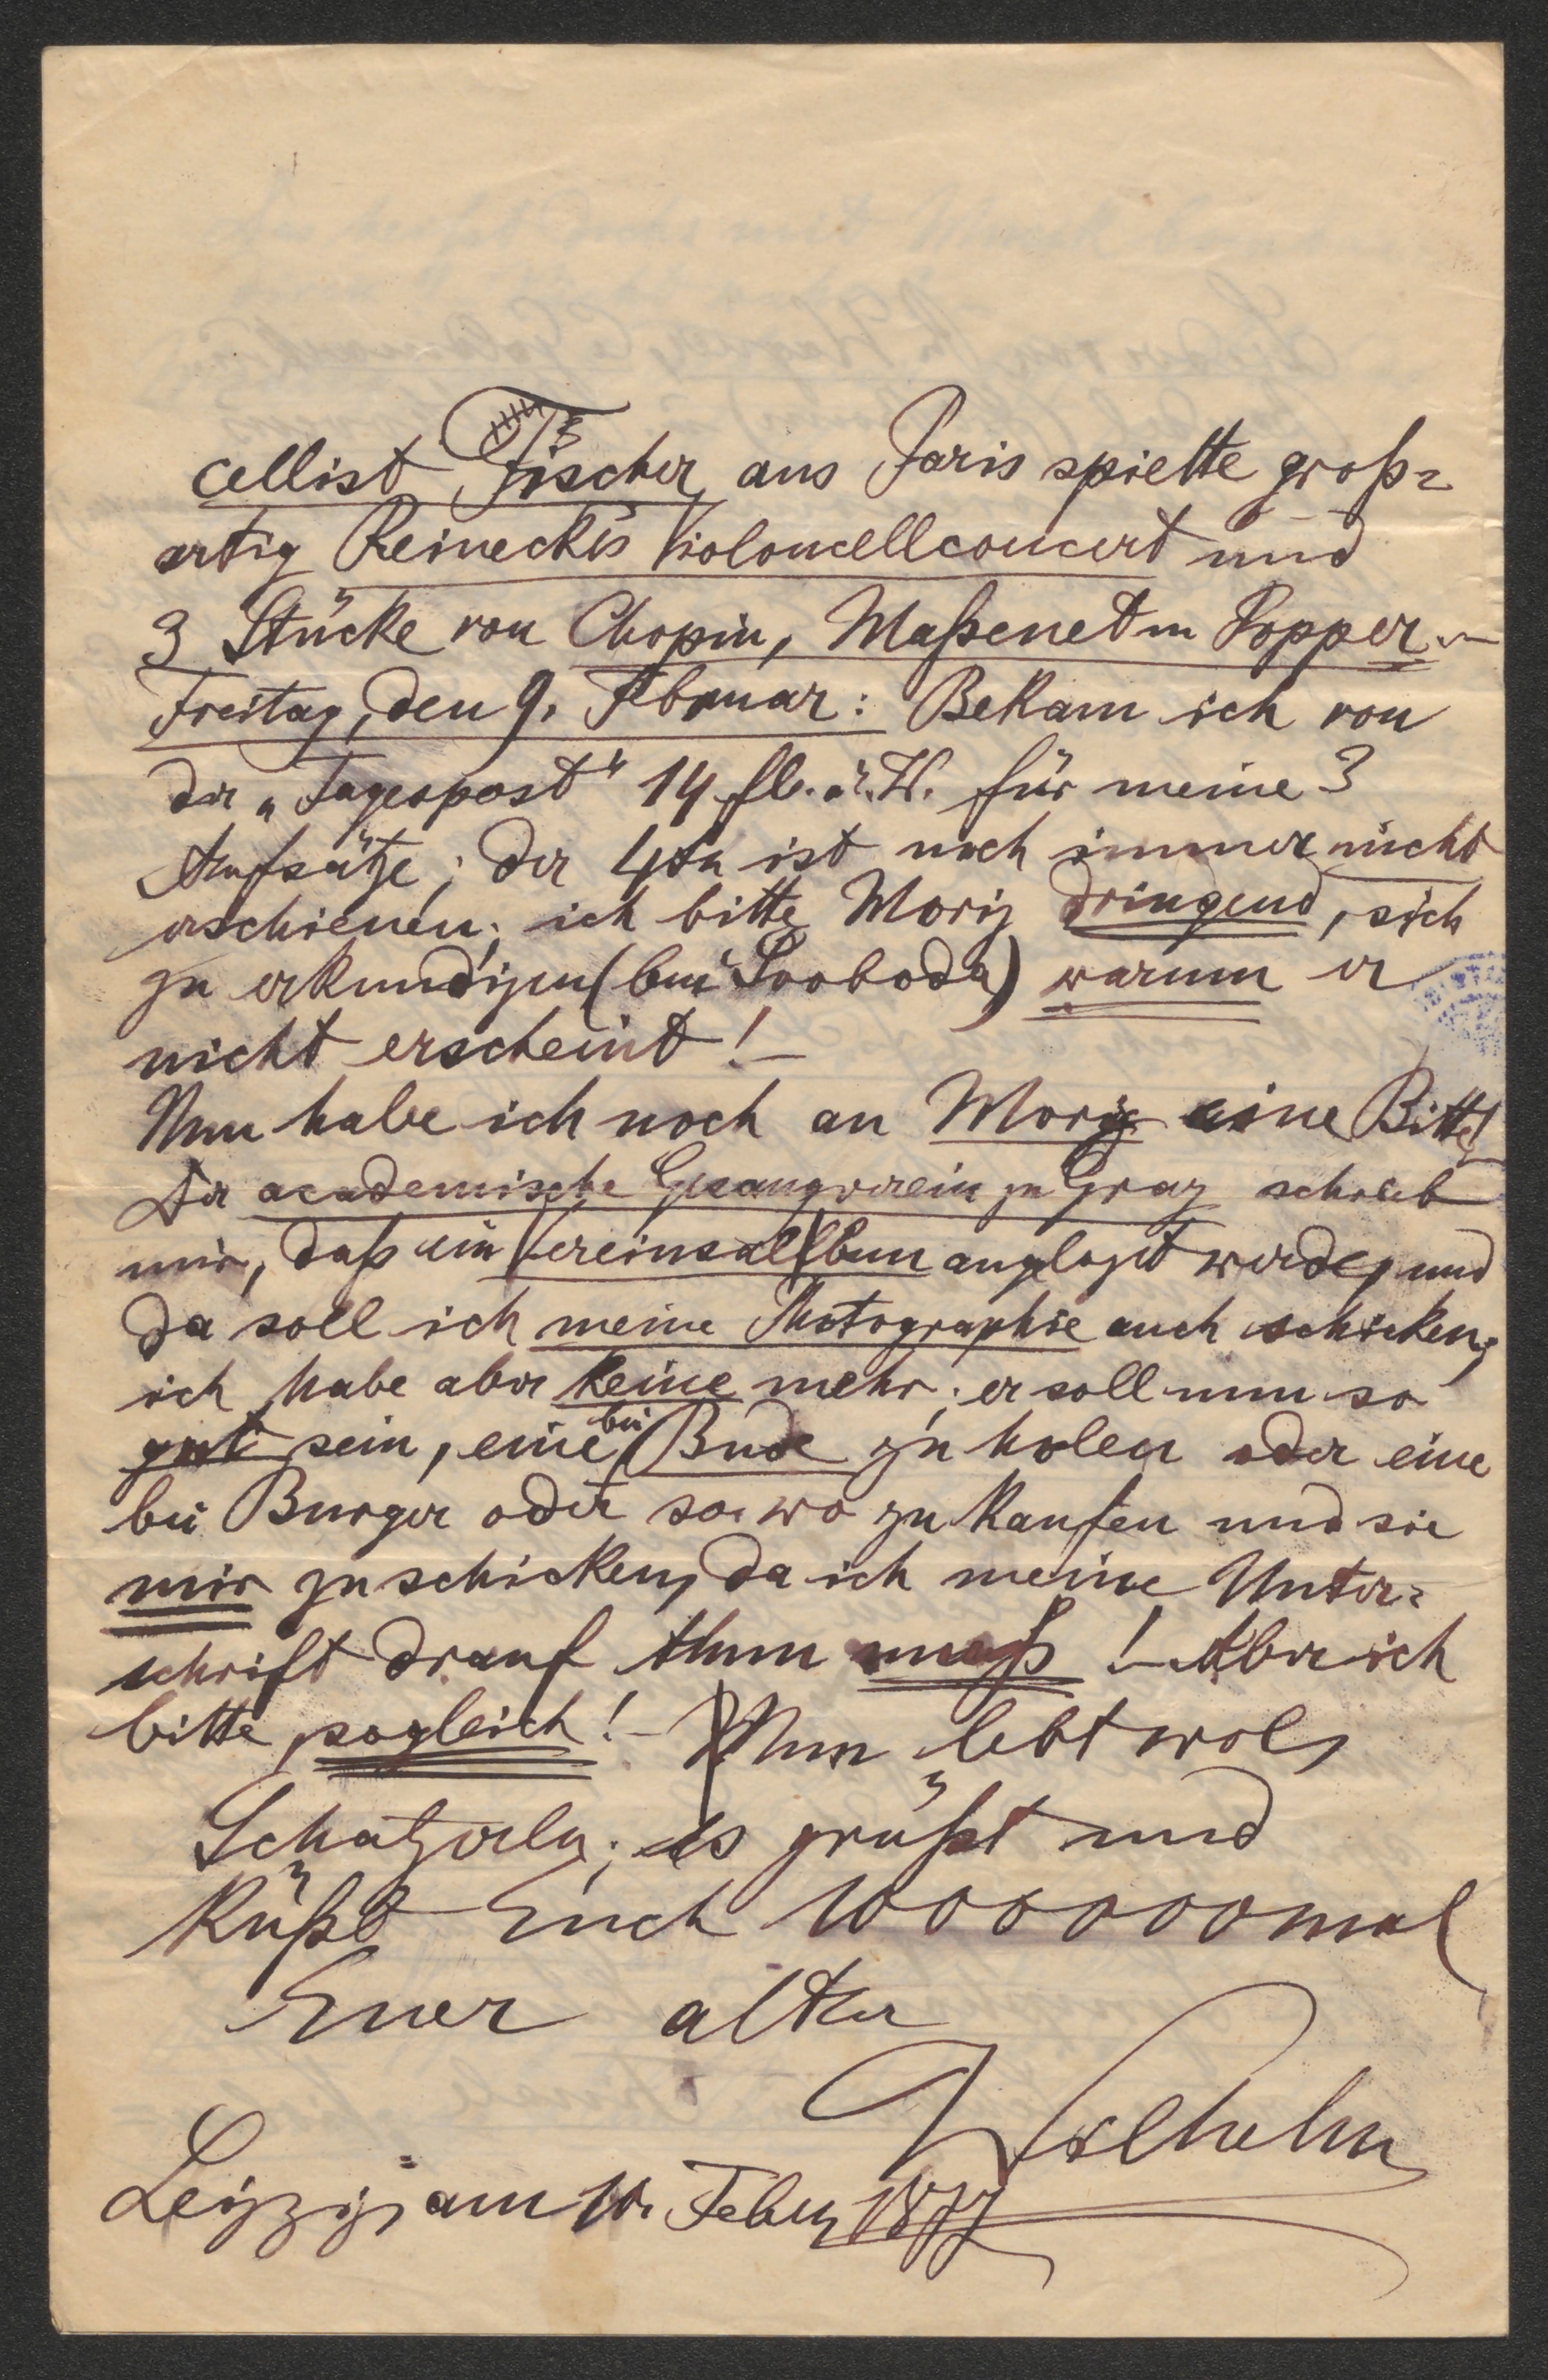 cellist Fischer aus Paris spielte groß=
artig Reineckes Violoncellconcert und
3 Stücke von Chopin, Maßenet u Popper. –
Freitag, den 9. Februar: Bekam ich von
der „Tagespost“ 14 fl. ö.W. für meine 3
Aufsätze; der 4te ist noch immer nicht
erschienen; ich bitte Moriz dringend, sich
zu erkundigen (bei Svoboda) warum er
nicht erscheint! –
Nun habe ich noch an Moriz eine Bitte!
Der academische Gesangverein zu Graz schrieb
mir, daß ein Vereinsalbum angelegt werde, und
da soll ich meine Photographie auch schicken;
ich habe aber keine mehr; er soll nun so
gut sein, eine bei Bude zu holen oder eine
bei Burger oder so wo zu kaufen und sie
mir zu schicken, da ich meine Unter=
schrift drauf thun muß! – Aber ich
bitte, sogleich! – Nun lebt wol,
Schatzerln; es grüßt und
küßt Euch 1000000mal
Euer alter
Wilhelm
Leipzig, am 10. Feber 1877